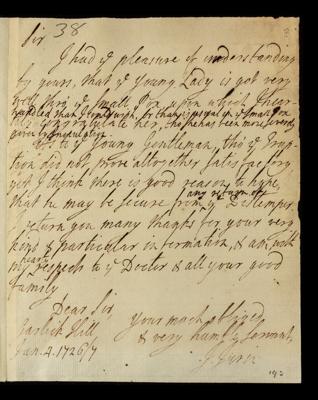 38
Sir
I had ye pleasure of understanding
by yours, that ye Young Lady is got very
well thro' ye small Pox, upon which I hear-
handled than I could wish, for that is usual in ye small Pox
her, tho' she has been more severely
given by Inoculation.
As to ye Young Gentleman, tho' ye Irrup-
tion did not prove altogether satisfactory
yet I think there is good reason to hope,
that he may be secure from any return of ye Distemper.
I return you many thanks for your very
kind & particular information, & am, with
my hearty respects to ye Doctor & all your good
family
Dear Sir
Your much obliged
Garlick Hill
& very humble Servant
Jan. 4. 1726/7
J. Jurin
192